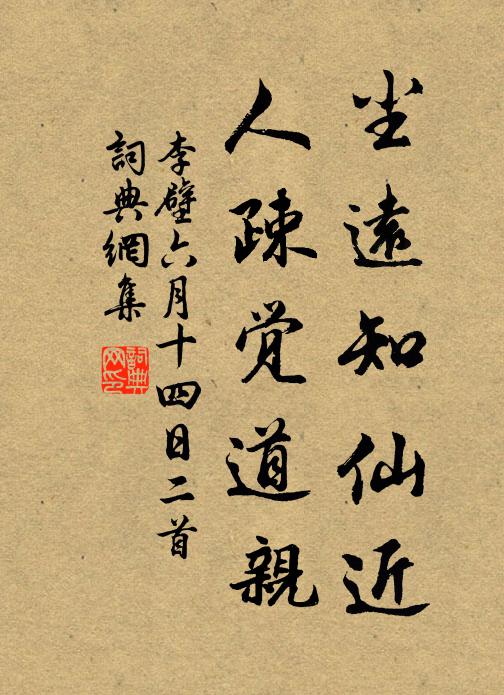 尘遠知仙近
人疎觉道親
李壁六月十四日二首
詞典網集
詞典
网印